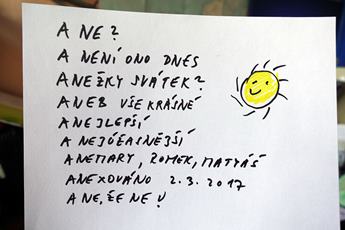 A NE?
A NENÍ ONO DNES
ANEŽKY SVÁTEK?
ANEB VŠE KRÁSNÉ
A NEJLEPŠÍ
A NEJÓČASNĚJŠÍ
ANEMARY, ROMEK, MATYÁŠ
ANEXOVÁNO 2.3.2017
A NE, ŽE NE!